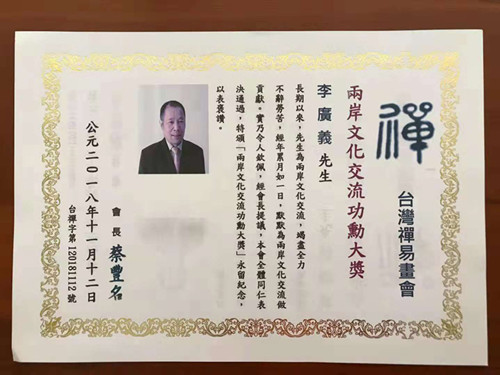 禪
台灣禪易畫會
兩岸文化交流功勳大獎
李廣義 先生
長期以來，先生為兩岸文化交流，竭盡全力
不辭勞苦，經年累月如一日，默默為兩岸文化交流做
貢獻。實乃令人欽佩，經會長提議，本會全體同仁表
決通過，特頒「兩岸文化交流功勳大獎」永留紀念，
以表褒讚。
會長 蔡豐名
公元二〇一八年十一月十二日
台禪字第 120181112 號